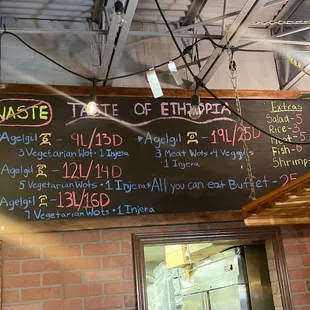 TASTE OF ETHIOPIA
Agelgil - 9L/13D
3 Vegetarian Wots + 1 Injera
Agelgil - 12L/14D
5 Vegetarian Wots + 1 Injera
Agelgil - 13L/16D
7 Vegetarian Wots + 1 Injera
Agelgil - 19L/25D
3 Meat Wots + 4 Veggies
1 Injera
All you can eat Buffet - 25
Extras
Salad-
Rice-5
Fish-6
Shrimp-